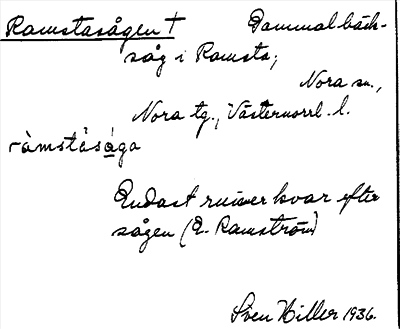 Ramstasågen † Gammal bäck-
såg i Ramsta,
Nora sn.,
Nora tg., Västernorrl. l.
ràmstäsåga
Endast ruiner kvar efter
sågen (E. Ramström)
Sven Hiller 1936.